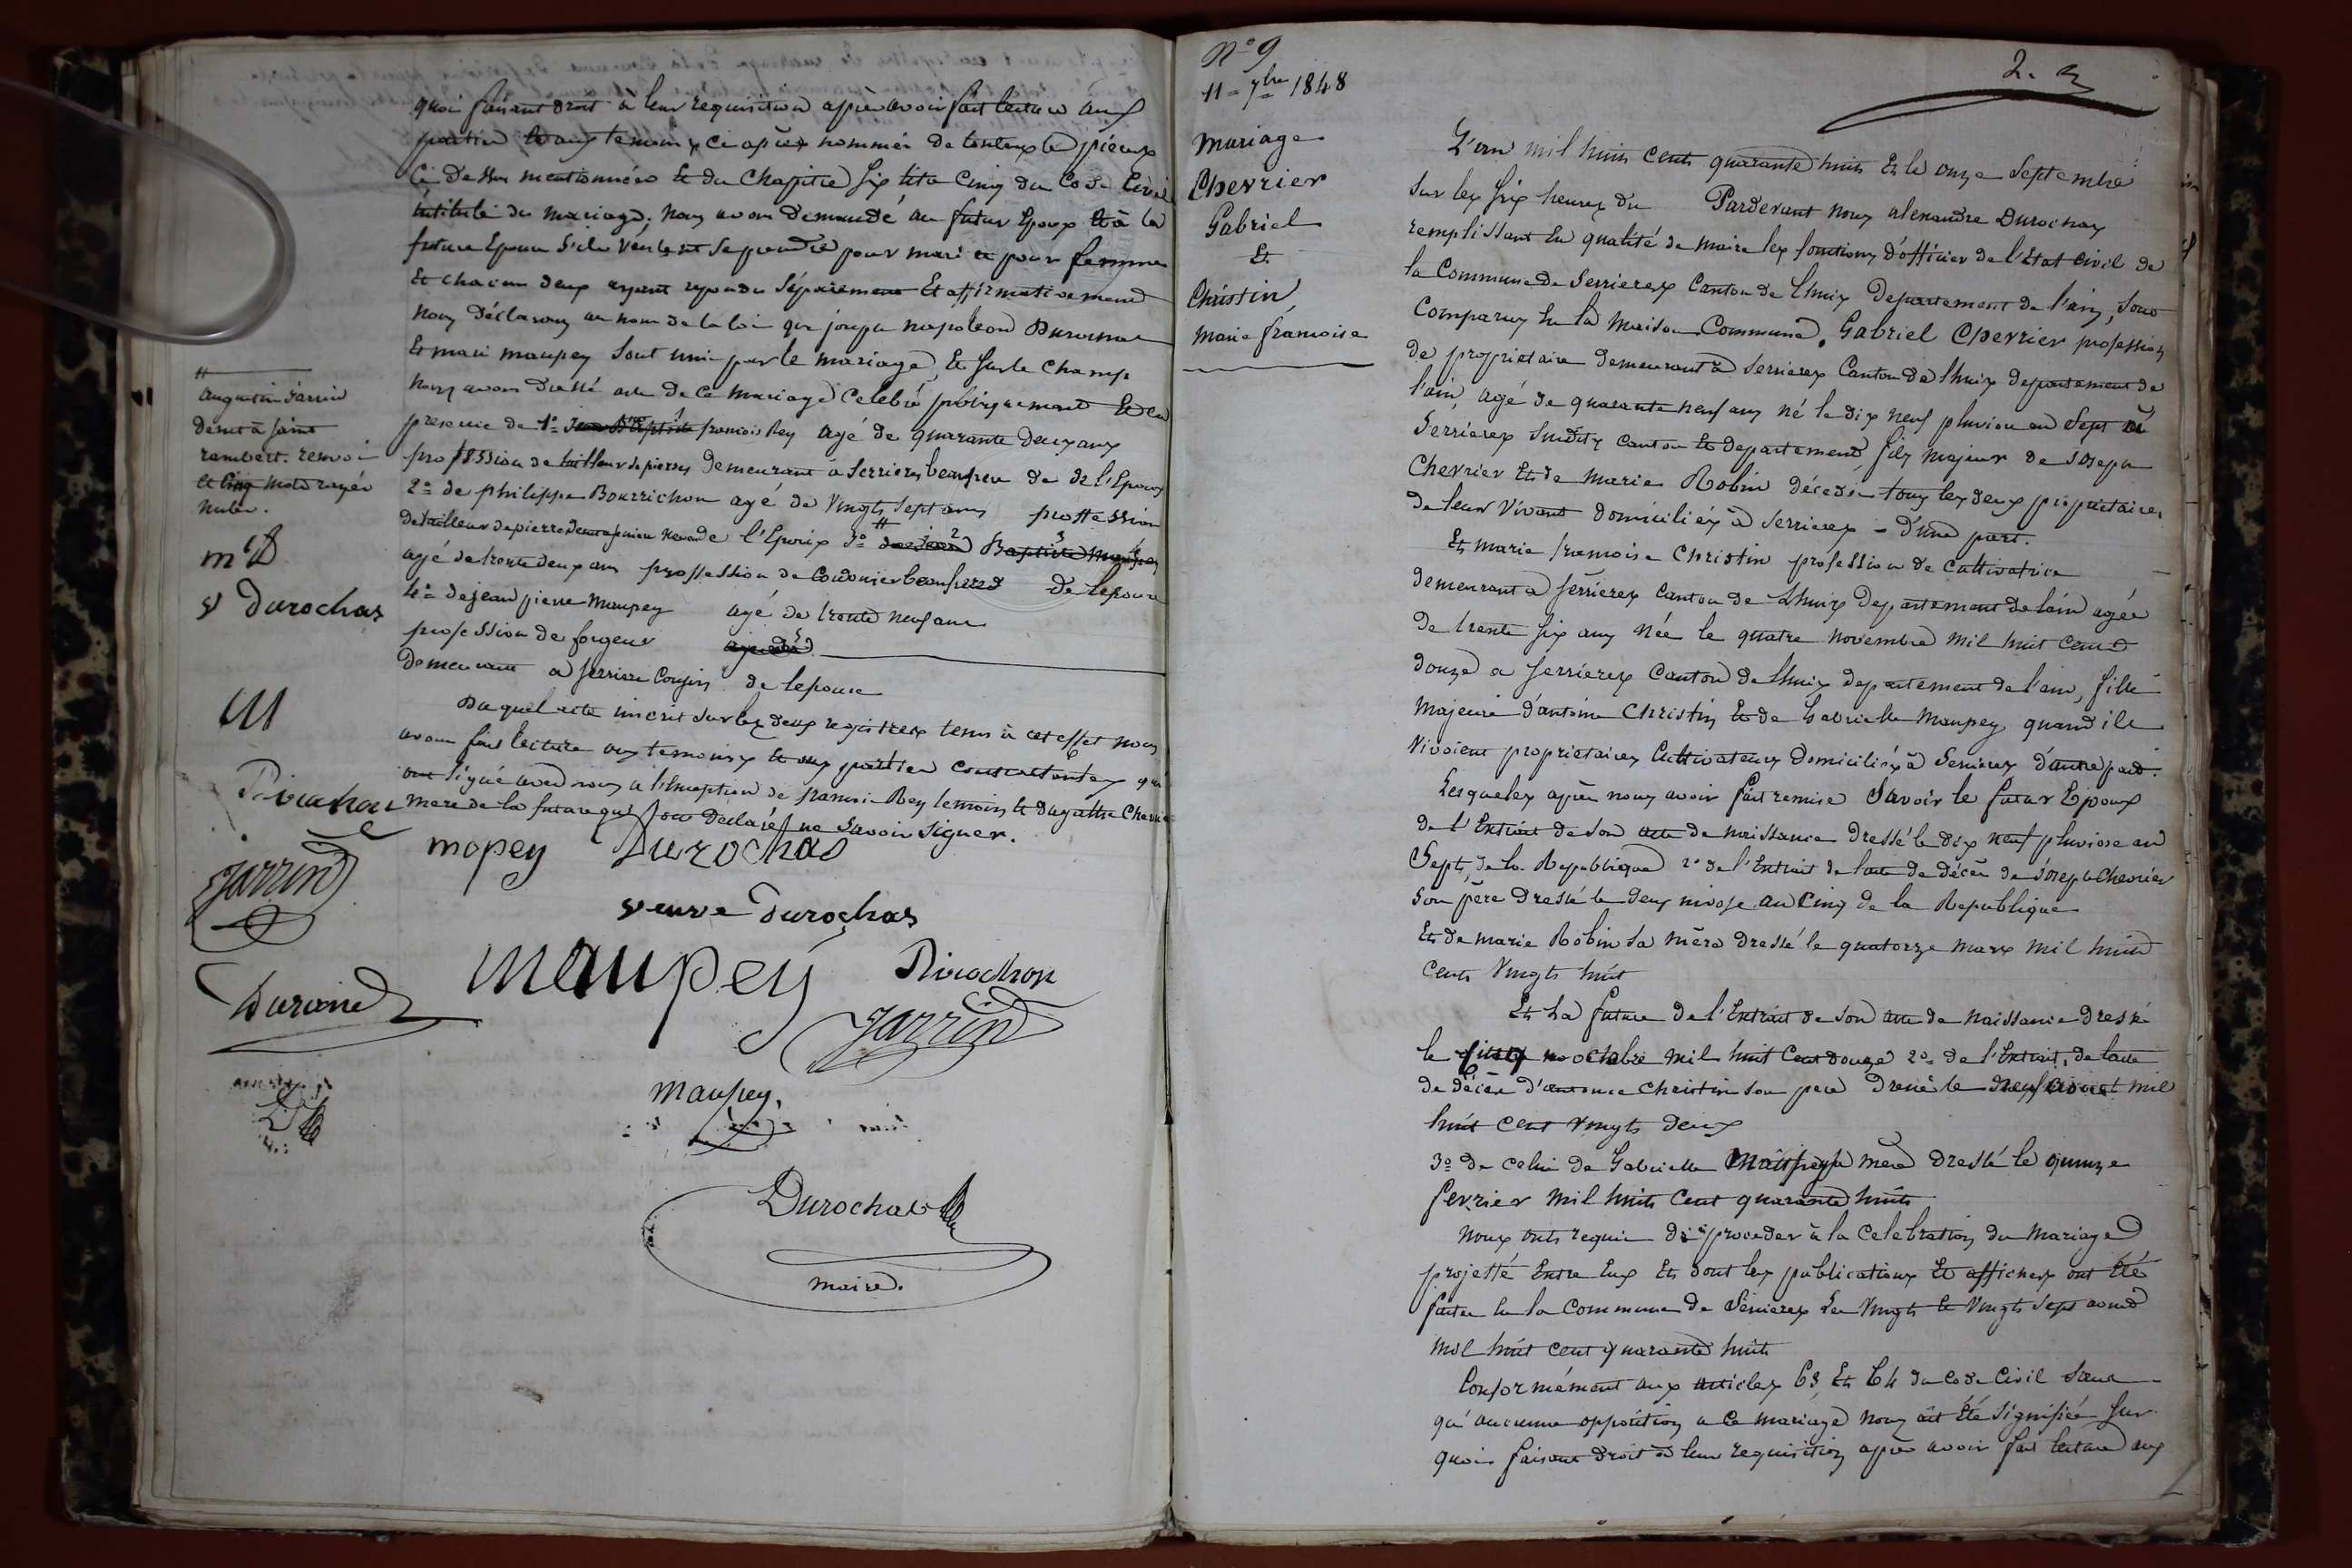 quoi faisant droit à leur requisition après avoir fait lecture aux
parties et aux temoins ci après nommés de toutes les pièces
ci dessus mentionnées et du Chapitre six titre cinq du Code Civil
intitulé du mariage, nous avons demandé au futur Epoux et à la
future Epouse s'ils veulent se prendre pour mari et pour femme
Et chacun deux ayant repondu séparement Et affirmativement
nous déclarons au nom de la loi que joseph napoléon Durochat
Et marie maupey sont unis par le mariage, Et sur le champ
nous avons dressé acte de ce mariage celebré publiquement Et en
presence de 1° jean Baptiste francois Rey agé de quarante deux ans
profession de tailleur de pierres demeurant à Serrieres beaufrere de l'Epoux
2° de philippe Bourrichon agé de Vingts sept ans proffession
de tailleur de pierre l'Epoux 3° Baptiste
agé de trente deux ans proffession de Cordonier beaufrere de lepoux
4° de jean pierre maupey agé de trente neuf ans
profession de forgeur
demeurant a serriere Cousin de lepouse
Duquel acte inscrit sur les deux registres tenus à cet effet nous
avons fait lecture aux temoins et aux parties contractantes qui
ont signé avec nous a l'Exception de francois Rey temoin et
mere de la future qui ont déclaré ne savoir signer.
#
augustin Jarrin
demt à saint
rambert. renvoi
et cinq mots rayés
nuls.
m D
v Durochat
M
Pirachon
Jarrin
Durand
mopey Durochas
veuve Durochas
Maupey Pirochon
Jarrin
Maupey,
Durochat
maire.
N° 9
11 = 7bre 1848
Mariage
Chevrier
Gabriel
Et
Christin
Marie francoise
2.
L'an mil huit cents quarante huit Et le onze Septembre
sur les six heures du Pardevant nous alexandre Durochat
remplissant En qualité de maire les fonctions d'officier de l'Etat civil de
la Commune de Serrieres Canton de Lhuis Departement de l'ain, sont
Comparus En la maison Commune. Gabriel Chevrier profession
de proprietaire demeurant à Serrieres Canton de Lhuis departement de
l'ain, agé de quarante neuf ans né le dix neuf pluviose an Sept à
Serrieres susdits canton Et departement, fils majeur de Joseph
Chevrier Et de Marie Robin décedés tous les deux proprietaires
de leur Vivant domiciliés à Serrieres - d'une part.
Et marie francoise Christin profession de Cultivatrice
demeurant à Serrieres Canton de Lhuis Departement de lain agée
de trente six ans née le quatre novembre mil huit cent
douze a Serrieres Canton de Lhuis departement de l'ain, fille
majeure d'antoine Christin Et de Gabrielle Maupey quand ils
vivoient proprietaires Cultivateurs domiciliés à Serrieres d'autre part.
Lesquels après nous avoir fait remise Savoir le futur Epoux
de l'Extrait de son acte de naissance dressé le dix neuf pluviose an
Sept, de la Republique 2° de l'Extrait de lacte de décès de Joseph Chevrier
Son père dressé le deux nivose an Cinq de la Republique
Et de marie Robin sa mère dressé le quatorze mars mil huit
cents Vingts huit
Et La future de l'Extrait de son acte de naissance dressé
le octobre mil huit Cent douze 2° de l'Extrait de lacte
de décès d'antoine Christin son pere dressé le mil
huit cent vingts deux
3° de celui de Gabrielle Maupey sa mere dressé le quinze
fevrier mil huit Cent quarante huit
Nous onts requis de proceder à la Celebration du mariage
projetté Entre Eux Et dont les publications Et affiches ont Eté
faites En la Commune de Serrieres Les Vingts Et Vingts Sept aoust
mil huit cent quarante huit
Conformément aux articles 63 Et 64 du Code Civil sans
qu'aucunne opposition a ce mariage nous ait Eté signifiée sur
quoi faisant droit à leur requisition après avoir fait lecture aux